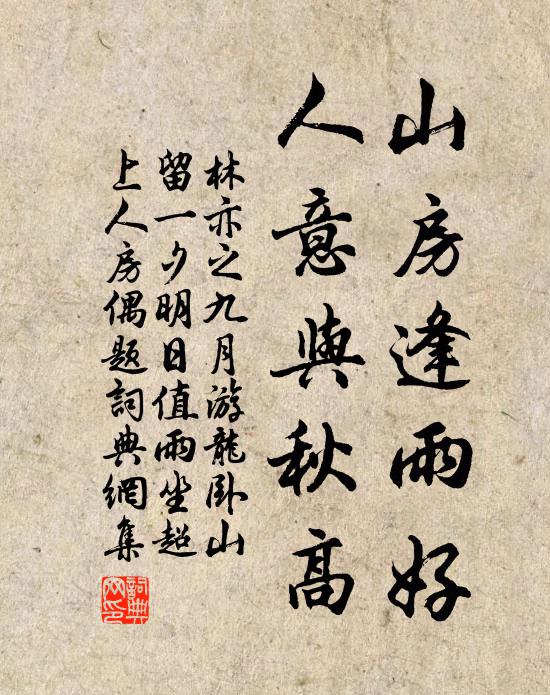 山房逢雨好
人意與秋高
林亦之九月游龍臥山
留一夕明日值雨坐超
上人房偶題詞典網集
詞典
网印